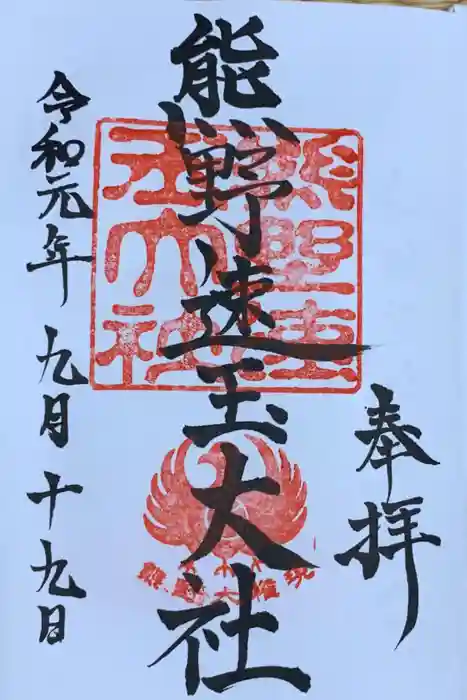 奉拝
熊野速玉大社
熊野速玉大社
熊野大権現
令和元年九月十九日